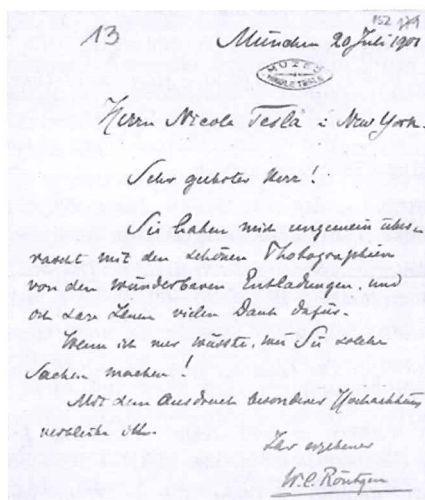 152 179
13 München 20 Juli 1901
MUZEJ
NIKOLE TESLE
Herrn Nicola Tesla i. New York.
Sehr geehrter Herr!
Sie haben mich ungemein über-
rascht mit den schönen Photographien
von den wunderbaren Entladungen, und
ich sage Ihnen vielen Dank dafür.
Wenn ich nur wüsste, wie Sie solche
Sachen machen!
Mit dem Ausdruck besonderer Hochachtung
verbleibe ich
Ihr ergebener
W. C. Röntgen